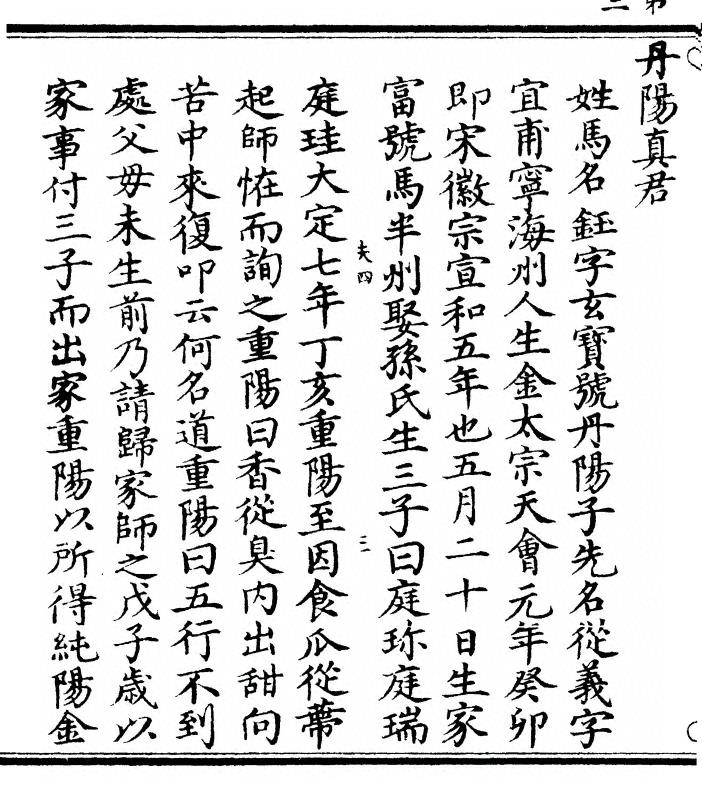 丹陽真君
姓馬名鈺字玄寶號丹陽子先名從義字
宜甫寧海州人生金太宗天會元年癸卯
即宋徽宗宣和五年也五月二十日生家
富號馬半州娶孫氏生三子曰庭珎庭瑞
夫四
三
庭珪大定七年丁亥重陽至因食瓜從蔕
起師恠而詢之重陽曰香從臭內出甜向
苦中來復叩云何名道重陽曰五行不到
處父毋未生前乃請歸家師之戊子歲以
家事付三子而出家重陽以所得純陽金